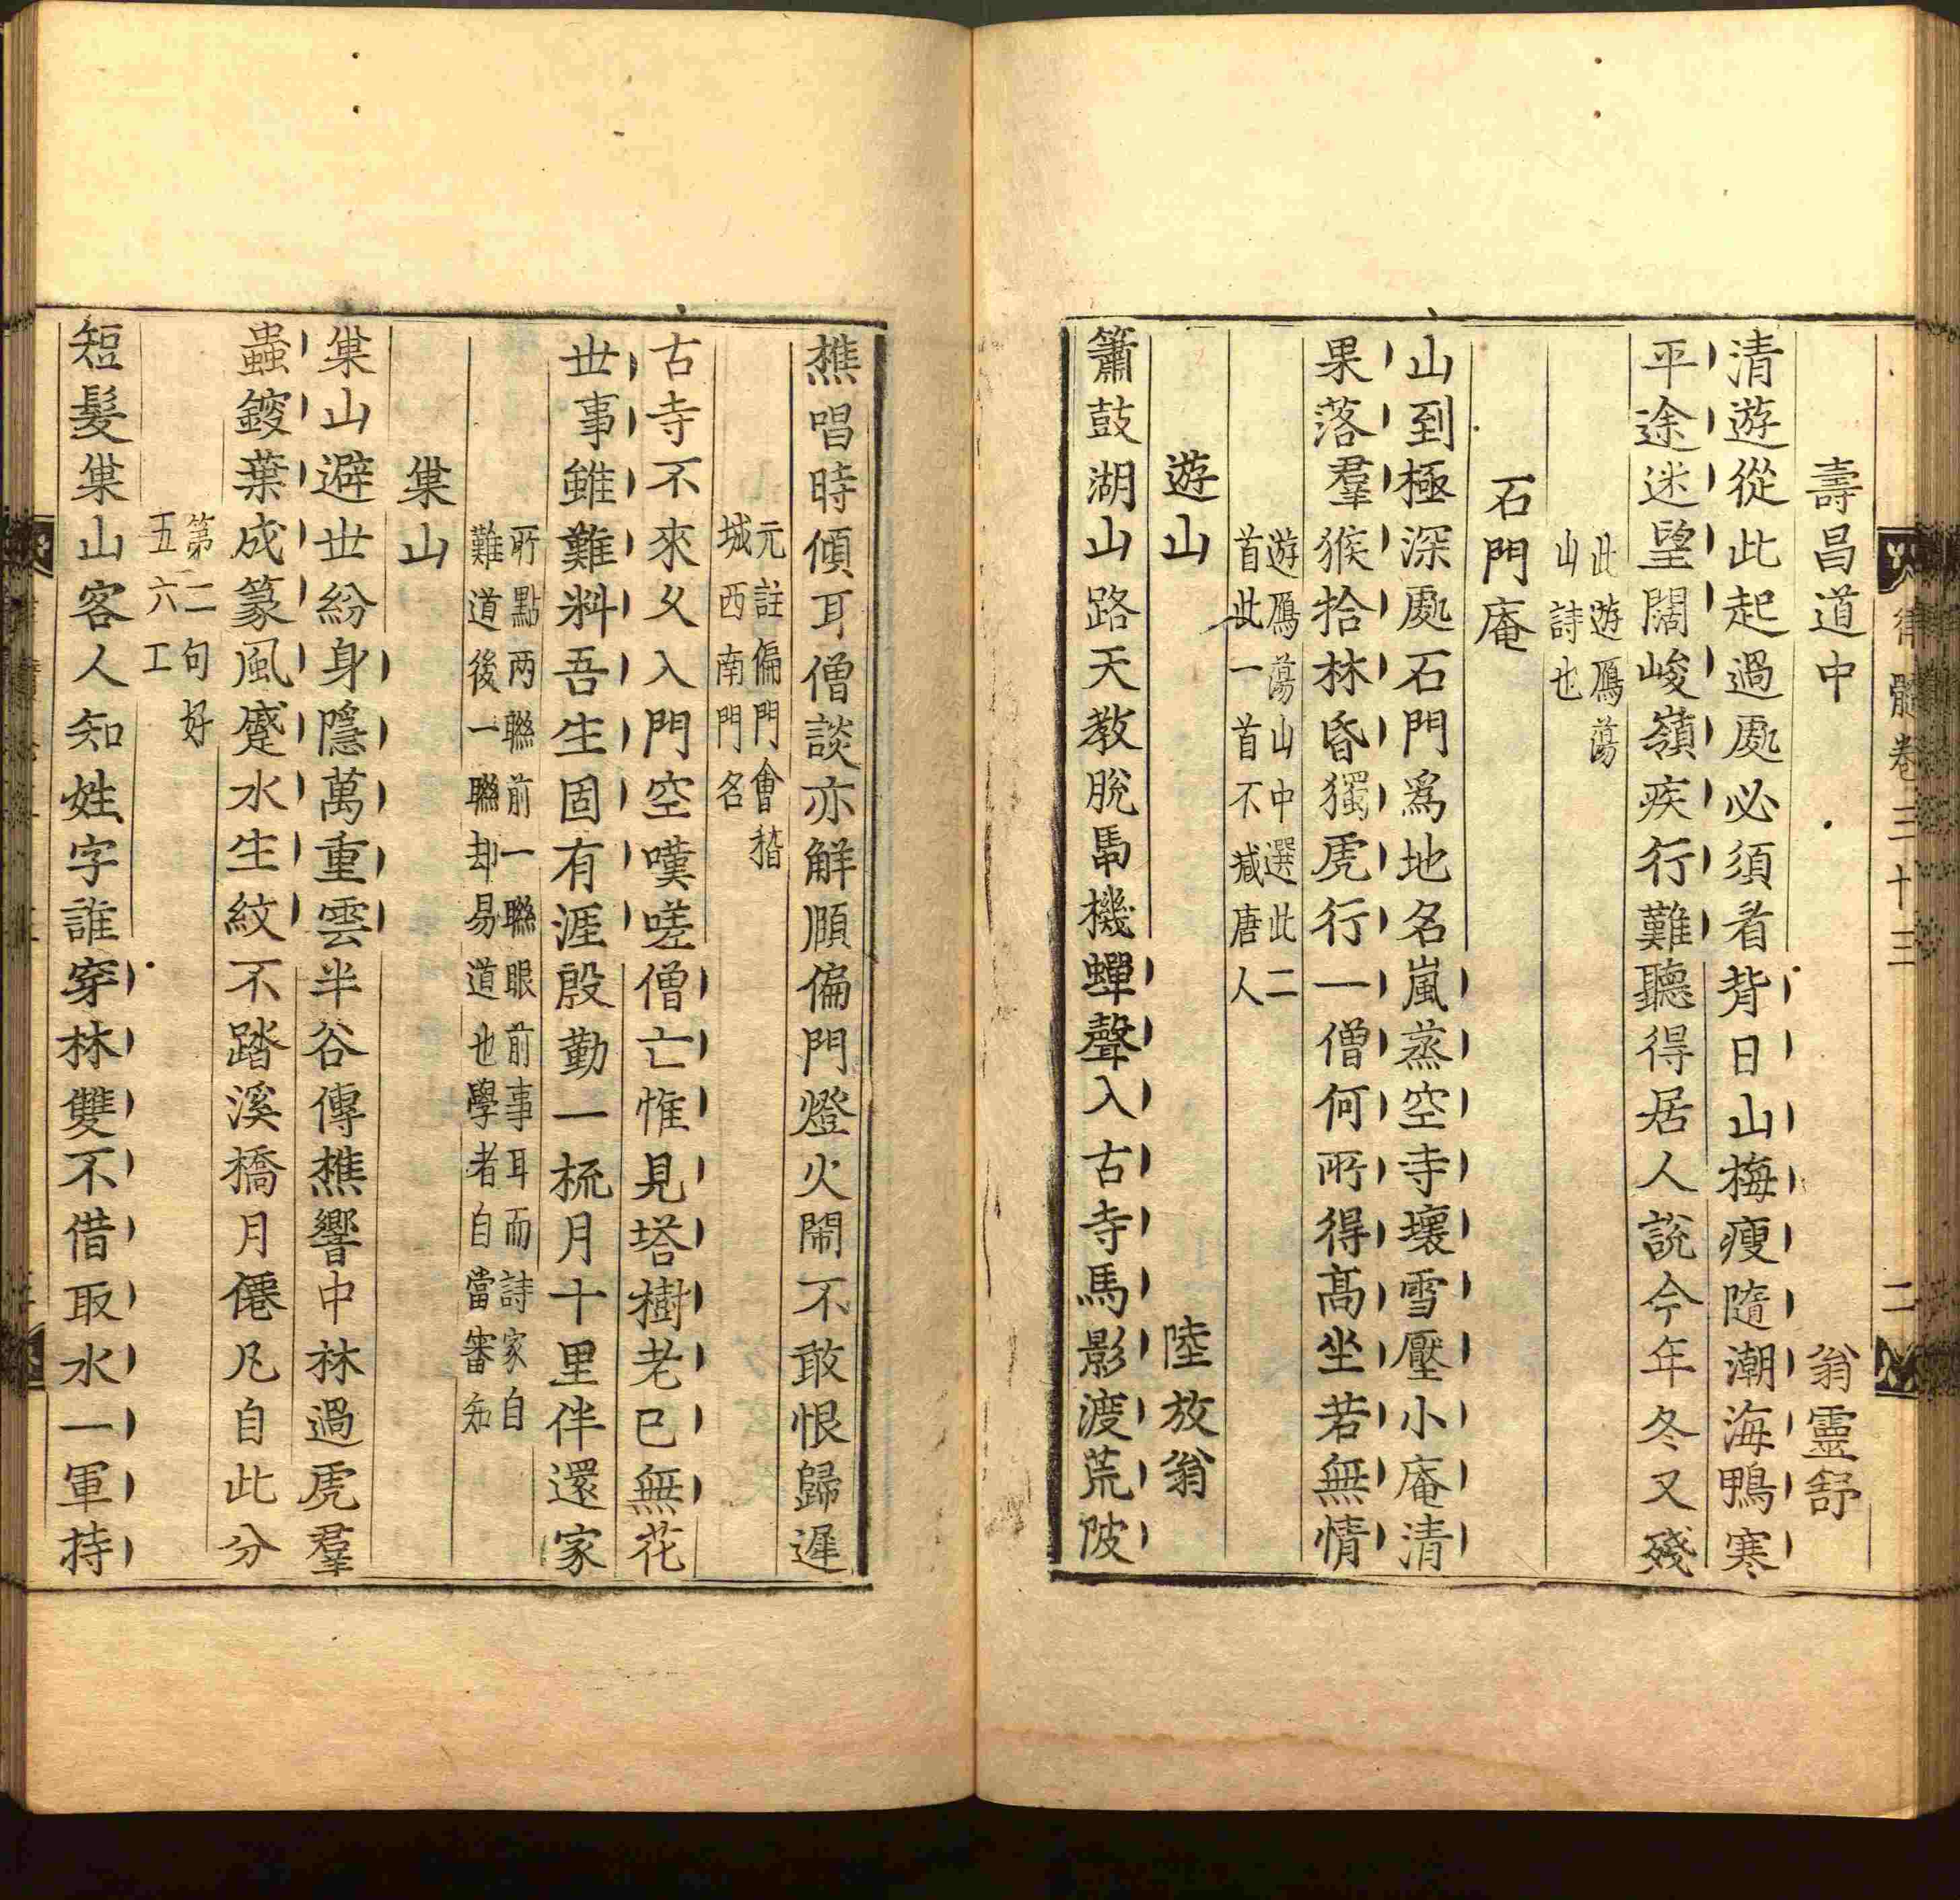 律髓卷三十三 二
壽昌道中 翁靈舒
清遊從此起過處必須看背日山梅瘦隨潮海鴨寒
平途迷望闊峻嶺疾行難聽得居人說今年冬又殘
此遊鴈蕩
山詩也
石門庵
山到極深處石門爲地名嵐蒸空寺壞雪壓小庵清
果落羣猴拾林昏獨虎行一僧何所得高坐若無情
遊鴈蕩山中選此二
首此一首不减唐人
遊山 陸放翁
簫鼓湖山路天教脫馽機蟬聲入古寺馬影渡荒陂
樵唱時傾耳僧談亦解頤偏門燈火鬧不敢恨歸遲
元註偏門會稽
城西南門名
古寺不來乆入門空嘆嗟僧亡惟見塔樹老已無花
世事雖難料吾生固有涯殷勤一梳月十里伴還家
所點两聯前一聯眼前事耳而詩家自
難道後一聯却易道也學者自當審知
巢山
巢山避世紛身隱萬重雲半谷傳樵響中林過虎羣
蟲鎪葉成篆風蹙水生紋不踏溪橋月僊凡自此分
第二句好
五六工
短髮巢山客人知姓字誰穿林雙不借取水一軍持